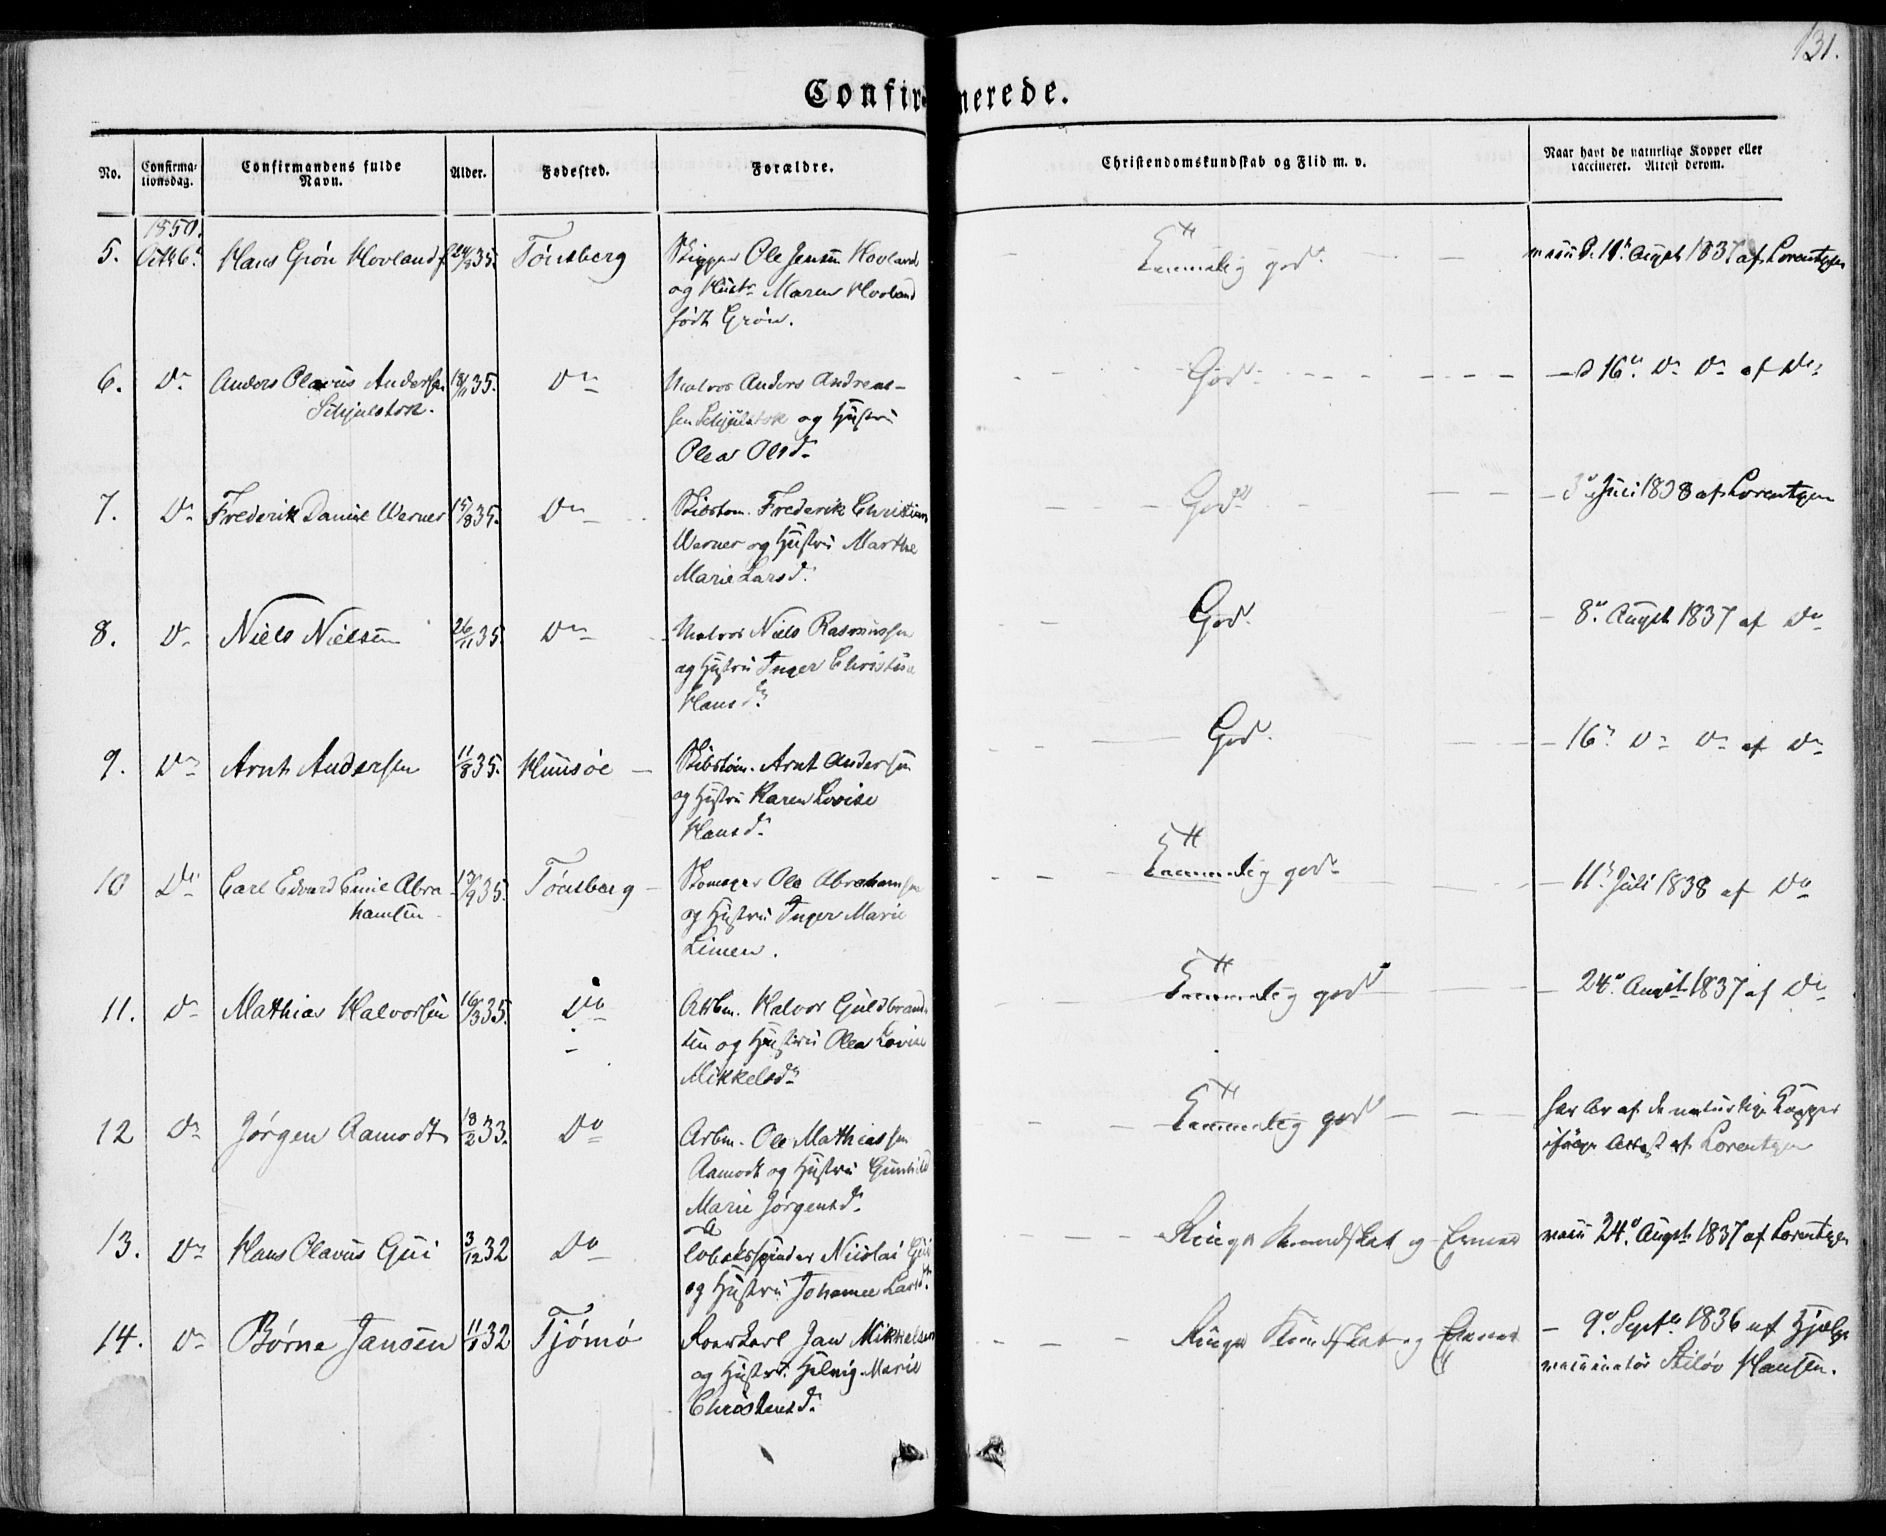 131.
Confirmerede.
No.
Confirma-
tionsdag.
Confirmandens fulde
Navn.
Alder.
Fødested.
Forældre.
Christendomskundskab og Flid m. v.
Naar havt de naturlige Kopper eller
vaccineret. Attest derom.
1850.
5. Octb 6. Hans Grön Hovland 35. Tönsberg Skipper Ole Jensen Hovland Temmelig god August 1837 af Lorentzen
og Hustr Maren Hovland
födt Grön.
6. Do Anders Olavus Andersen 35. Do Matros Anders Andreas- God 16 Do Do af Do
Schjelstok. sen Schjelstok og Hustru
Olea Olsd.
7. Do Frederik Daniel Werner 15/8 35. Do Skibstom. Frederik Christian God 3 Juli 1838 af Lorentzen
Werner og Hustru Marthe
Marie Larsd.
8. Do Niels Nielsen 26/11 35 Do Matros Niels Rasmussen God. 8 August 1837 af Do
og Hustru Inger Christine
Hansd.
9. Do Arnt Andersen 11/8 35. Huusöe Skibstöm. Arnt Andersen God. 16 Do Do af Do
og Hustru Karen Lovise
Hansd.
10 Do Carl Edvard Emil Abra- 13/9 35. Tönsberg Skomager Ole Abrahamsen Temmelig god 11 Juli 1838 af Do
hamsen og Hustru Inger Marie
Limen.
11. Do Mathias Halvorsen 16/3 35. Do Arbm. Halvor Guldbrand- Temmelig god 24 August 1837 af Do
sen og Hustru Olea Lovise
Mikkelsd.
12 Do Jörgen Aamodt 18/2 33. Do Arbm. Ole Mathiassen Temmelig god har Ar af de naturlige Kopper
Aamodt og Hustru Gunhild ifölge Attest af Lorentzen
Marie Jörgensd.
13. Do Hans Olavus Gui 3/12 32 Do Tobaksspinder Nicolai Gui Ringe Kundskab og Evner vacc 24 August 1837 af Lorentzen
og Hustru Johanne Larsd.
14. Do Börne Jansen 32 Tjömö Jan Mikkelsen Ringe Kundskab og Evner 9 Septbr 1836 af Hjælpe
og Hustru Helvig Marie vaccinatör Hansen.
Christensd.